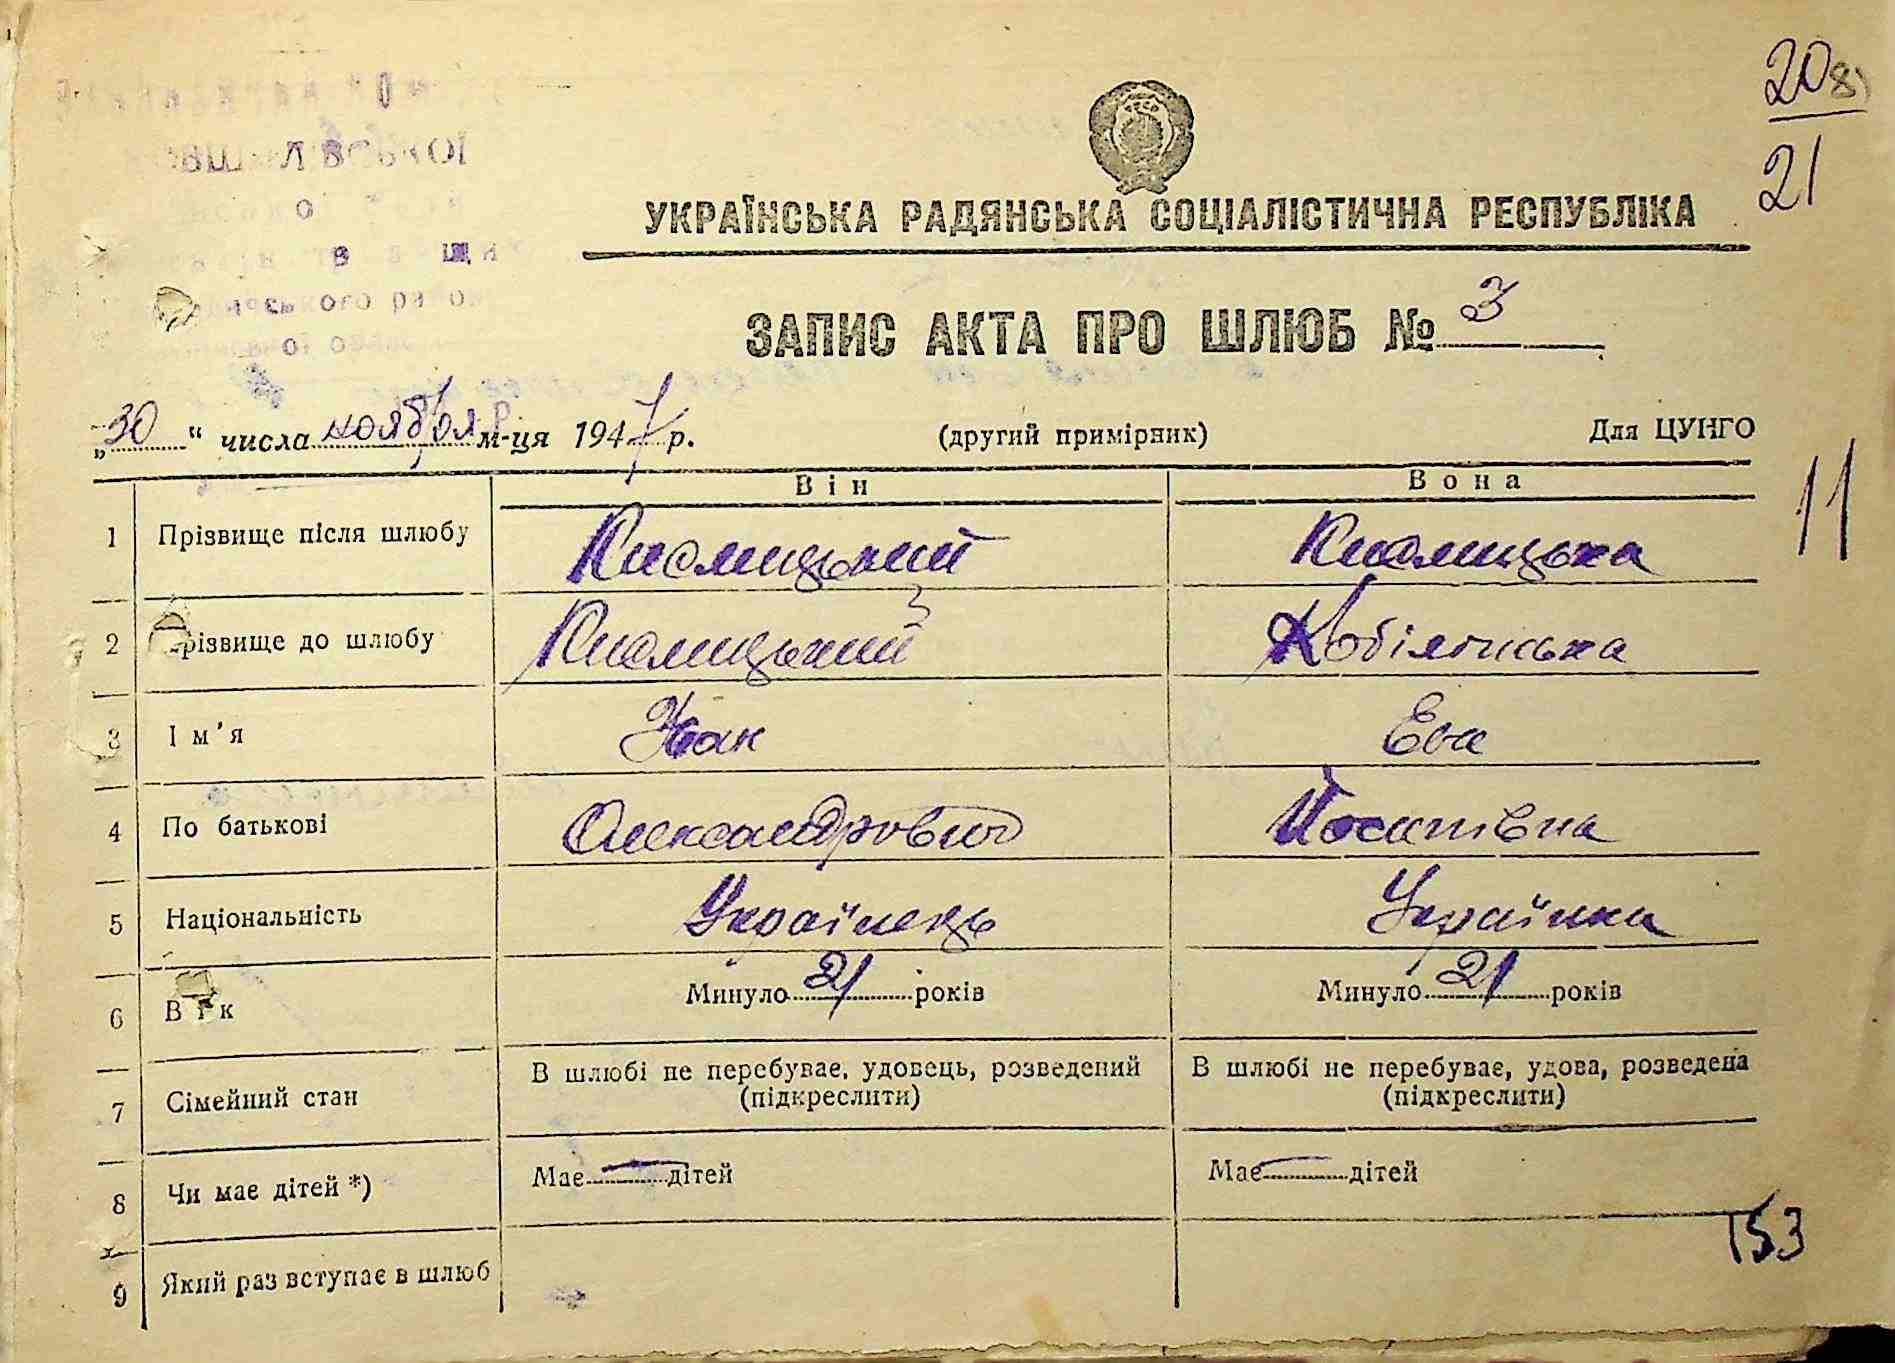 20 8)
21
УКРАЇНСЬКА РАДЯНСЬКА СОЦІАЛІСТИЧНА РЕСПУБЛІКА
ЗАПИС АКТА ПРО ШЛЮБ № 3
„30“ числа ноября м-ця 1947 р. (другий примірник) Для ЦУНГО
11
Він Вона
1 Прізвище після шлюбу Кислицький Кислицька
2 Прізвище до шлюбу Кислицький Кобілянська
3 Ім'я Іван Ева
4 По батькові Олександрович Йосипівна
5 Національність Українець Українка
6 Вік Минуло 21 років Минуло 21 років
7 Сімейний стан В шлюбі не перебуває, удовець, розведений В шлюбі не перебуває, удова, розведена
(підкреслити) (підкреслити)
8 Чи має дітей *) Має — дітей Має — дітей
153
9 Який раз вступає в шлюб